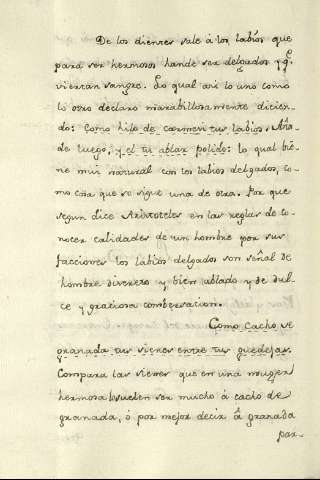 De los dientes sale á los labios que
para ser hermosos hande ser delgados y q.
viertan sangre. Lo qual asi lo uno como
lo otro declaro marabillosamente dicien-
do: Como hilo de carmesi tus labios. Aña-
de luego, y el tu ablar polido: lo qual bie-
ne mui natural con los labios delgados, co-
mo cosa que se sigue una de otra. Por que
segun dice Aristoteles en las reglas de co-
nocer calidades de un hombre por sus
facciones los labios delgados son señal de
hombre discreto y bien ablado y de dul-
ce y gratiosa combersacion.
Como cacho de
granada tus sienes entre tus guedejas.
Compara las sienes que en una muger
hermosa suelen ser mucho á cacho de
granada, ó por mejor decir á granada
par-